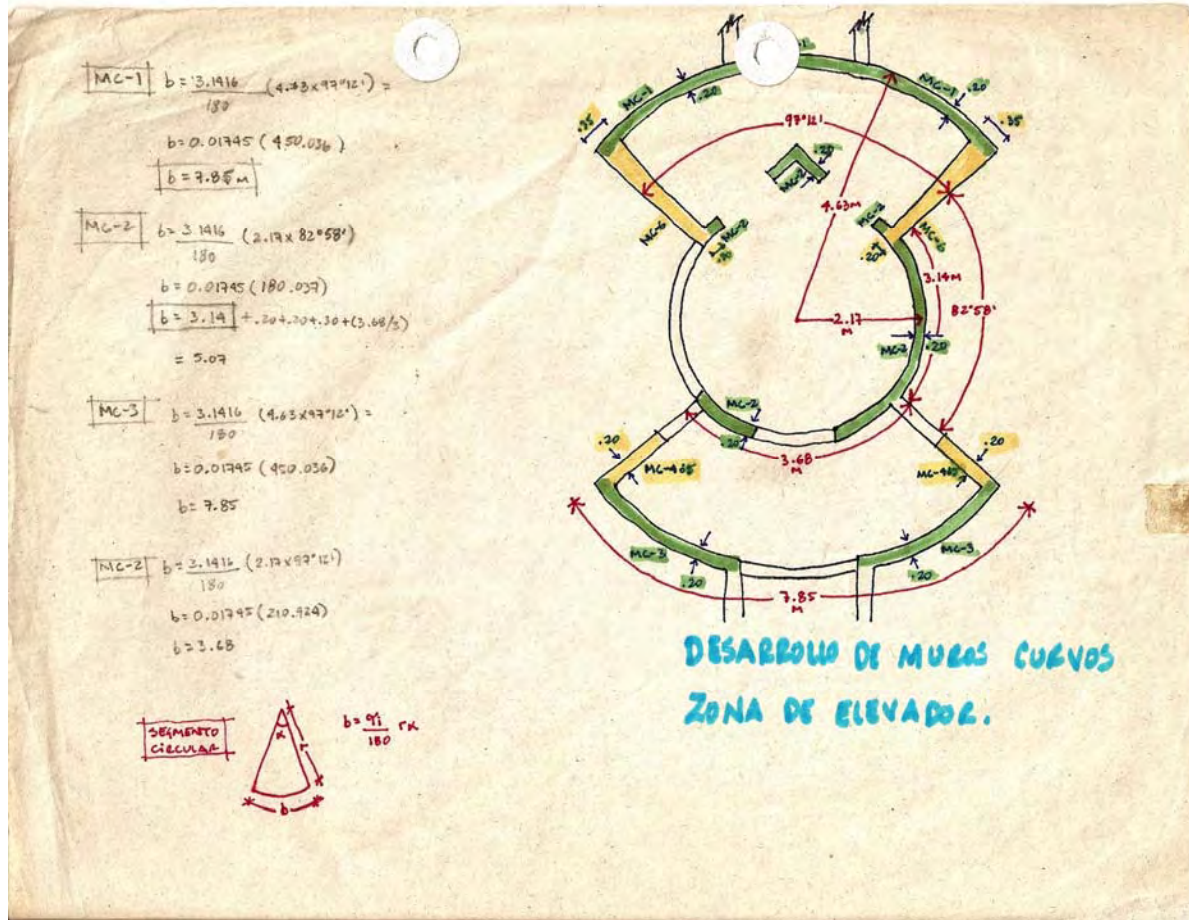 MC-1 b = 3.1416/180 (4.63x97°12') =
b = 0.01745 (450.036)
b = 7.85 m
MC-2 b = 3.1416/180 (2.17x82°58')
b = 0.01745 (180.037)
b = 3.14 + .20+.20+.30+(3.68/3)
= 5.07
MC-3 b = 3.1416/180 (4.63x97°12') =
b = 0.01745 (450.036)
b = 7.85
MC-2 b = 3.1416/180 (2.17x97°12')
b = 0.01745 (210.924)
b = 3.68
SEGMENTO
CIRCULAR
α
r
b
b = π/180 rα
MC-1
.20
MC-1
.20
.35
.35
97°12'
.20
MC-2
4.63M
MC-6
MC-2
.20
MC-2
MC-6
.20
3.14M
82°58'
2.17
M
MC-2
.20
MC-2
.20
3.68
M
.20
MC-4ó5
.20
MC-4ó5
MC-3
.20
MC-3
.20
7.85
M
DESARROLLO DE MUROS CURVOS
ZONA DE ELEVADOR.